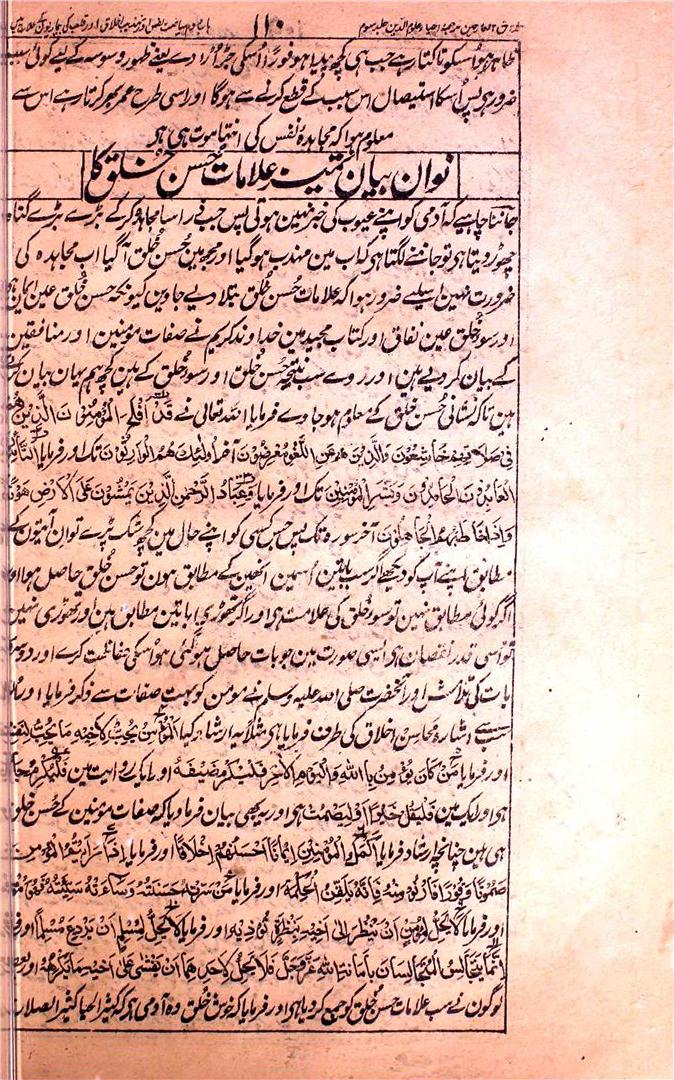 مذاق العارفین ترجمہ احیاء علوم الدین جلد سوم ۱۱۰ باب دوم ریاضت نفس اور تہذیب اخلاق اور قلب کی بیماریوں کے علاج میں
ظاہر ہو اسکو تاکتا رہے جب ہی کچھ پیدا ہو فوراً اُسکی جڑ اڑا دے یعنے ظہور وسوسہ کے لیے کوئی سبب
ضرور ہی پس اُسکا استیصال اس سبب کے قطع کرنے سے ہوگا اور اسی طرح عمر بھر کرتا رہے اس سے
معلوم ہوا کہ مجاہدۂ نفس کی انتہا موت ہی ہی
نوان بیان تمیز علامات حُسن خلق کا
جاننا چاہیے کہ آدمی کو اپنے عیوب کی خبر نہین ہوتی پس جب ذرا سا مجاہدہ کرکے بڑے بڑے گناہ
چھوڑ دیتا ہی تو جاننے لگتا ہی کہ اب مین مہذب ہو گیا اور مجھ مین حُسن خُلق آگیا اب مجاہدہ کی
ضرورت نہین اسلیے ضرور ہوا کہ علامات حُسن خُلق بتلا دیے جاوین کیونکہ حسن خُلق عین ایمان ہی
اور سوء خُلق عین نفاق اور کتاب مجید مین خداوند کریم نے صفات مؤمنین اور منافقین
کے بیان کر دیے ہین اور روے سب نتیجہ حُسن خُلق اور سوء خُلق کے ہین کچھ ہم یہان بیان کرتے
ہین تاکہ نشانی حُسن خلق کے معلوم ہو جاوے فرمایا اللہ تعالی نے قَدْ أَفْلَحَ الْمُؤْمِنُونَ الَّذِينَ هُمْ
فِي صَلَاتِهِمْ خَاشِعُونَ وَالَّذِينَ هُمْ عَنِ اللَّغْوِ مُعْرِضُونَ آخر أُولَئِكَ هُمُ الْوَارِثُونَ تک اور فرمایا التَّائِبُونَ
الْعَابِدُونَ الْحَامِدُونَ وَبَشِّرِ الْمُؤْمِنِينَ تک اور فرمایا وَعِبَادُ الرَّحْمَنِ الَّذِينَ يَمْشُونَ عَلَى الْأَرْضِ هَوْنًا
وَإِذَا خَاطَبَهُمُ الْجَاهِلُونَ آخر سورہ تک پس جس کسی کو اپنے حال مین کچھ شک پڑے تو ان آیتون کے
مطابق اپنے آپ کو دیکھے اگر سب باتین اُسمین انھین کے مطابق ہون تو حسن خُلق حاصل ہوا اور
اگر کوئی مطابق نہین تو سوء خُلق کی علامت ہی اور اگر تھوڑی باتین مطابق ہین اور تھوڑی نہین
تو اُسی قدر نقصان ہی ایسی صورت مین جو بات حاصل ہو گئی ہو اُسکی حفاظت کرے اور دوسری
بات کی تلاش اور آنحضرت صلی اللہ علیہ وسلم نے مومن کو بہت صفات سے ذکر فرمایا اور
سب سے اشارہ محاسن اخلاق کی طرف فرمایا ہی مثلاً یہ ارشاد کیا الْمُؤْمِنُ يُحِبُّ لِأَخِيهِ مَا يُحِبُّ لِنَفْسِهِ
اور فرمایا مَنْ كَانَ يُؤْمِنُ بِاللهِ وَالْيَوْمِ الْآخِرِ فَلْيُكْرِمْ ضَيْفَهُ اور ایک روایت مین فَلْيُكْرِمْ جَارَهُ
ہی اور ایک مین فَلْيَقُلْ خَيْرًا أَوْ لِيَصْمُتْ ہی اور یہ بھی بیان فرما دیا کہ صفات مؤمنین کے حُسن خُلق
ہی ہین چنانچہ ارشاد فرمایا أَكْمَلُ الْمُؤْمِنِينَ إِيمَانًا أَحْسَنُهُمْ أَخْلَاقًا اور فرمایا إِذَا رَأَيْتُمُ الْمُؤْمِنَ
صَمُوتًا وَقُورًا فَادْنُوا مِنْهُ فَإِنَّهُ يُلَقَّنُ الْحِكْمَةَ اور فرمایا مَنْ سَرَّتْهُ حَسَنَتُهُ وَسَاءَتْهُ سَيِّئَتُهُ فَهُوَ مُؤْمِنٌ
اور فرمایا لَا يَحِلُّ لِمُؤْمِنٍ أَنْ يَنْظُرَ إِلَى أَخِيهِ بِنَظْرَةٍ تُؤْذِيهِ اور فرمایا لَا يَحِلُّ لِمُسْلِمٍ أَنْ يُرَوِّعَ مُسْلِمًا اور فرمایا
إِنَّمَا يَتَجَالَسُ الْمُتَجَالِسَانِ بِأَمَانَةِ اللهِ عَزَّ وَجَلَّ فَلَا يَحِلُّ لِأَحَدِهِمَا أَنْ يُفْشِيَ عَلَى أَخِيهِ مَا يَكْرَهُهُ اور بعض
لوگون نے سب علامات حسن خُلق کو جمع کر دیا ہی اور فرمایا کہ خوش خُلق وہ آدمی ہی کہ کثیر الحیا کثیر الصلاح